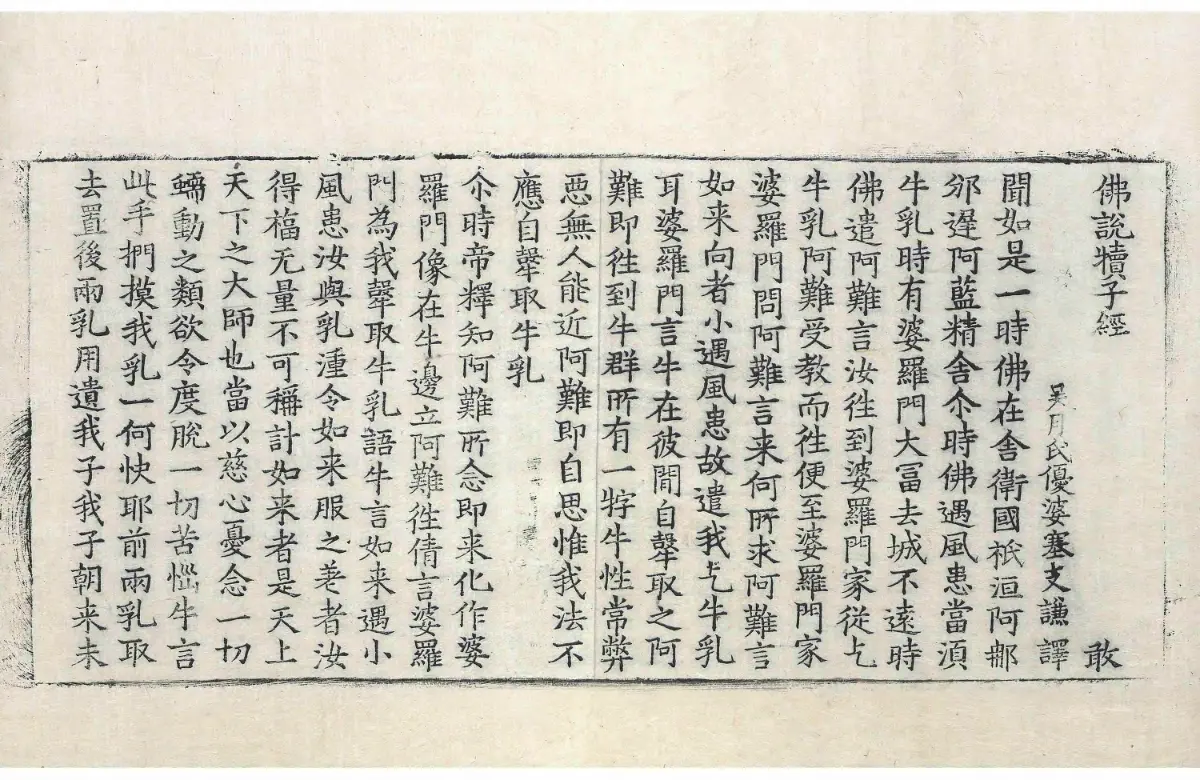 佛說犢子經 敢
吴月氏優婆塞支謙 譯
聞如是一時佛在舍衛國祇洹阿郍
邠遲阿藍精舍尒時佛遇風患當湏
牛乳時有婆羅門大冨去城不遠時
佛遣阿難言汝徃到婆羅門家從乞
牛乳阿難受教而徃便至婆羅門家
婆羅門問阿難言来何所求阿難言
如来向者小遇風患故遣我乞牛乳
耳婆羅門言牛在彼間自𤛗取之阿
難即徃到牛群所有一牸牛性常弊
惡無人能近阿難即自思惟我法不
應自𤛗取牛乳
尒時帝釋知阿難所念即来化作婆
羅門像在牛邊立阿難徃倩言婆羅
門為我𤛗取牛乳語牛言如来遇小
風患汝與乳湩令如来服之差者汝
得福无量不可稱計如来者是天上
天下之大師也當以慈心憂念一切
蠕動之類欲令度脫一切苦惱牛言
此手捫摸我乳一何快耶前兩乳取
去置後兩乳用遺我子我子朝来未